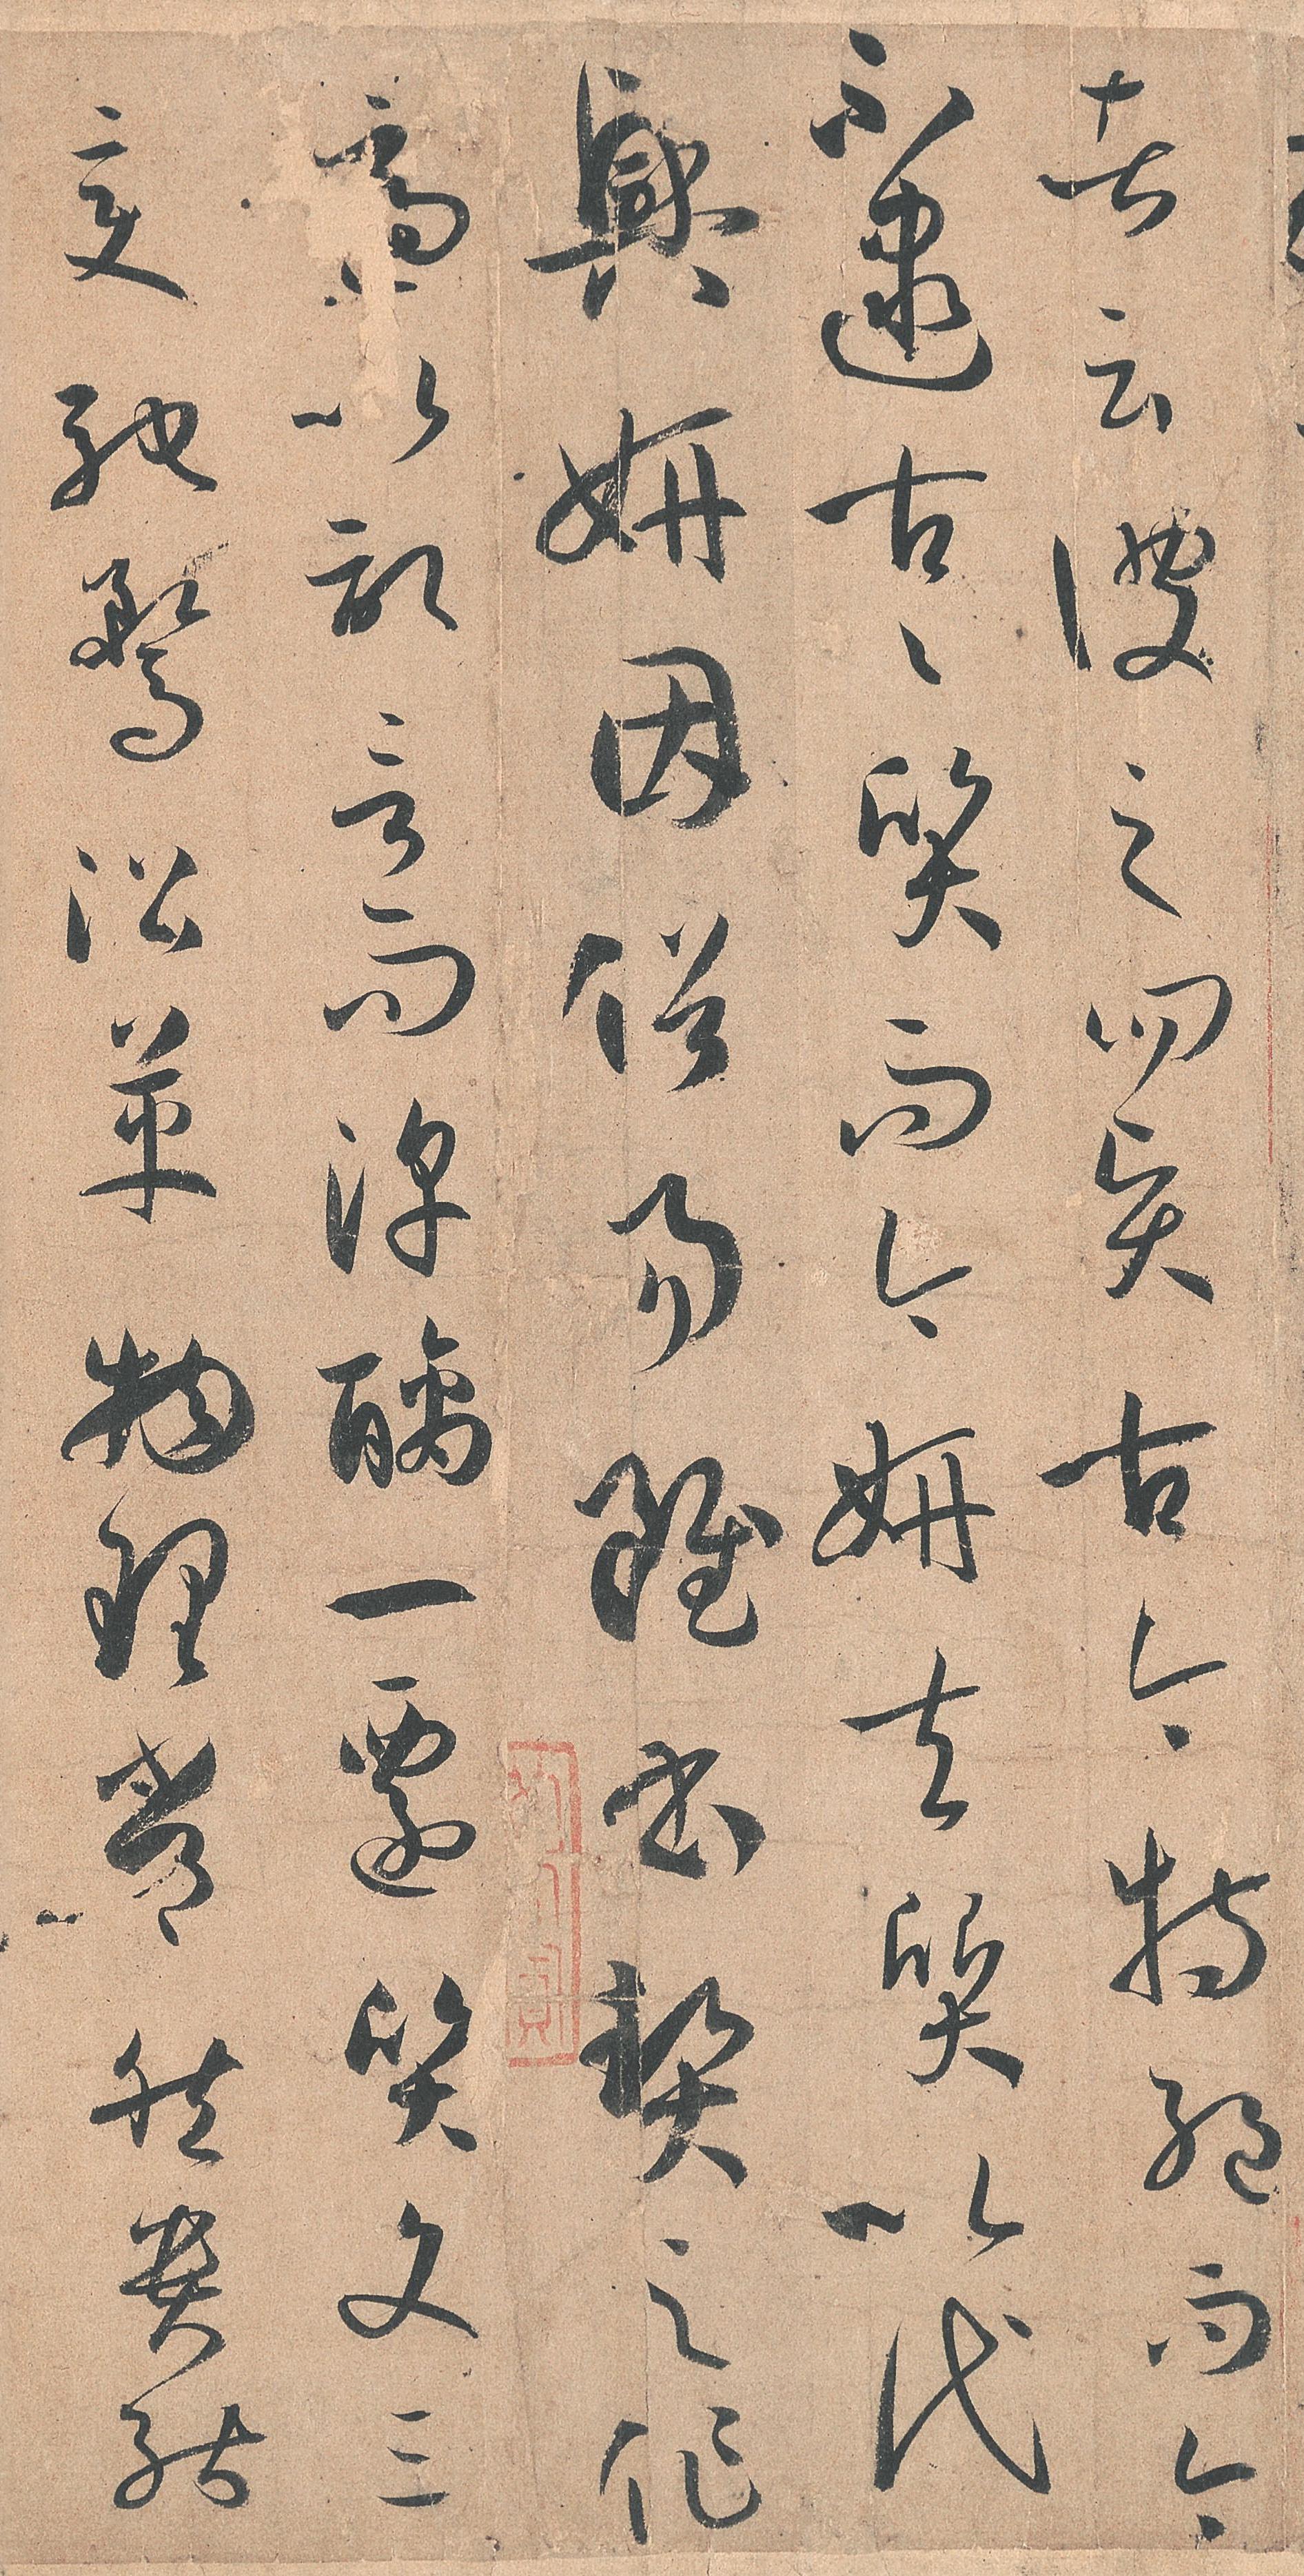 者云彼之四賢古今特絶而今
不逮古〻質而今妍夫質以代
興妍因俗易雖書契之作
適以記言而淳醨一遷質文三
變馳騖沿革物理常然貴能